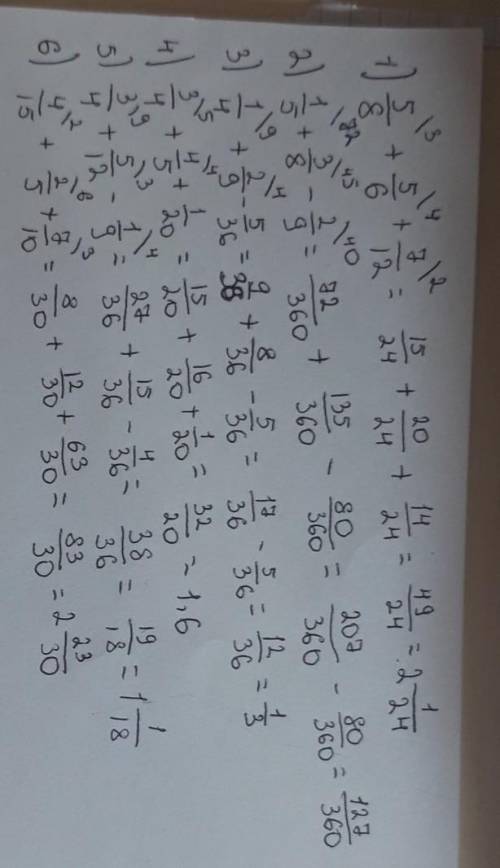 1) 5/8 /3 + 5/6 /4 + 7/12 /2 = 15/24 + 20/24 + 14/24 = 49/24 = 2 1/24
2) 1/5 /72 + 3/8 /45 - 2/9 /40 = 72/360 + 135/360 - 80/360 = 207/360 - 80/360 = 127/360
3) 1/4 /9 + 2/9 /4 - 5/36 = 9/36 + 8/36 - 5/36 = 17/36 - 5/36 = 12/36 = 1/3
4) 3/4 /5 + 4/5 /4 + 1/20 = 15/20 + 16/20 + 1/20 = 32/20 = 1,6
5) 3/4 /9 + 5/12 /3 - 1/9 /4 = 27/36 + 15/36 - 4/36 = 38/36 = 19/18 = 1 1/18
6) 4/15 /2 + 2/5 /6 + 7/10 /3 = 8/30 + 12/30 + 63/30 = 83/30 = 2 23/30